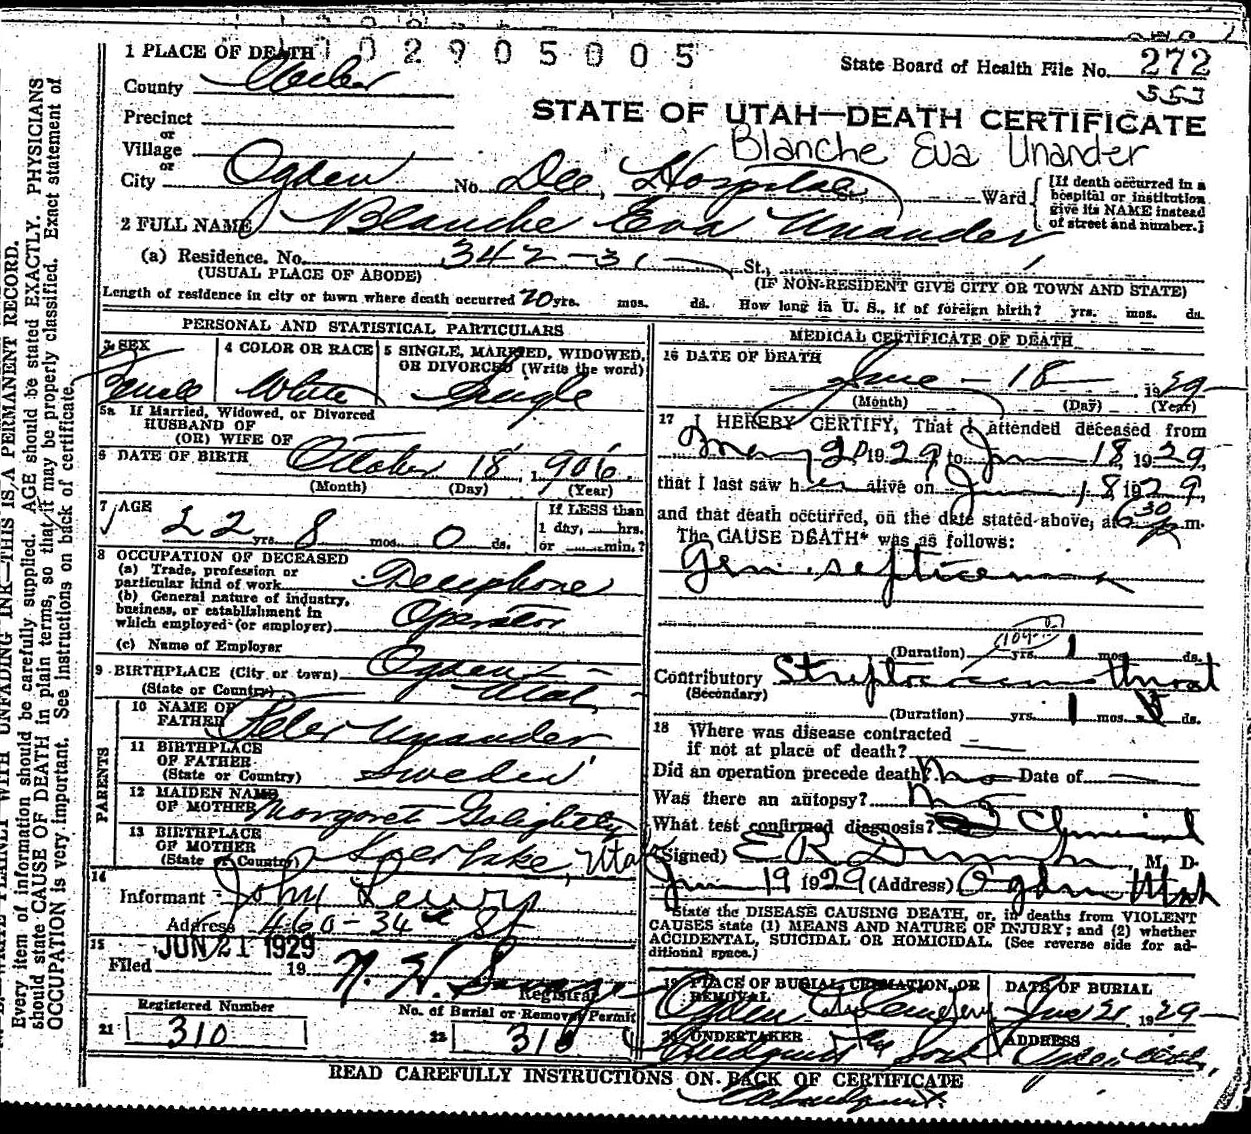 1 PLACE OF DEATH 1002905005
State Board of Health File No. 272
553
County Weber
STATE OF UTAH—DEATH CERTIFICATE
Precinct
or
Village
Blanche Eva Unander
or
City Ogden No. Dee, Hospital St., Ward
[If death occurred in a hospital or institution give its NAME instead of street and number.]
2 FULL NAME Blanche Eva Unander
(a) Residence. No. 342-31 St.,
(USUAL PLACE OF ABODE) (IF NON-RESIDENT GIVE CITY OR TOWN AND STATE)
Length of residence in city or town where death occurred 20 yrs. mos. ds. How long in U. S., if of foreign birth? yrs. mos. ds.
PERSONAL AND STATISTICAL PARTICULARS
3 SEX Female
4 COLOR OR RACE White
5 SINGLE, MARRIED, WIDOWED, OR DIVORCED (Write the word) Single
5a If Married, Widowed, or Divorced
HUSBAND OF
(OR) WIFE OF
6 DATE OF BIRTH October 18, 1906
(Month) (Day) (Year)
7 AGE 22 yrs. 8 mos. 0 ds.
If LESS than
1 day, hrs.
or min.?
8 OCCUPATION OF DECEASED
(a) Trade, profession or
particular kind of work Telephone
(b) General nature of industry,
business, or establishment in
which employed (or employer) Operator
(c) Name of Employer
9 BIRTHPLACE (City or town) Ogden
(State or Country) Utah
PARENTS
10 NAME OF
FATHER Peter Unander
11 BIRTHPLACE
OF FATHER
(State or Country) Sweden
12 MAIDEN NAME
OF MOTHER Margaret Golightly
13 BIRTHPLACE
OF MOTHER
(State or Country) Lake, Utah
14
Informant John Lewis
Address 460-34th St
15
Filed JUN 21 1929 19
Registrar
Registered Number
21 310
No. of Burial or Removal Permit
22 310
MEDICAL CERTIFICATE OF DEATH
16 DATE OF DEATH
June - 18 - 1929
(Month) (Day) (Year)
17 I HEREBY CERTIFY, That I attended deceased from
May 20 1929, to Jun 18, 1929,
that I last saw her alive on Jun 18 1929,
and that death occurred, on the date stated above, at 6 30 p m.
The CAUSE DEATH* was as follows:
Gen. septicemia
(Duration) yrs. 1 mos. ds.
Contributory
(Secondary) throat
(Duration) yrs. 1 mos. ds.
18 Where was disease contracted
if not at place of death?
Did an operation precede death? No Date of
Was there an autopsy? No
What test confirmed diagnosis? Clinical
(Signed) E R M. D.
Jun 19 1929 (Address) Ogden Utah
*State the DISEASE CAUSING DEATH, or, in deaths from VIOLENT
CAUSES state (1) MEANS AND NATURE OF INJURY; and (2) whether
ACCIDENTAL, SUICIDAL OR HOMICIDAL. (See reverse side for additional space.)
19 PLACE OF BURIAL, CREMATION, OR
REMOVAL
Ogden City Cemetery
DATE OF BURIAL
Jun 21, 1929
20 UNDERTAKER
ADDRESS
READ CAREFULLY INSTRUCTIONS ON BACK OF CERTIFICATE
Every item of information should be carefully supplied. AGE should be stated EXACTLY. PHYSICIANS
should state CAUSE OF DEATH in plain terms, so that it may be properly classified. Exact statement of
OCCUPATION is very important. See instructions on back of certificate.